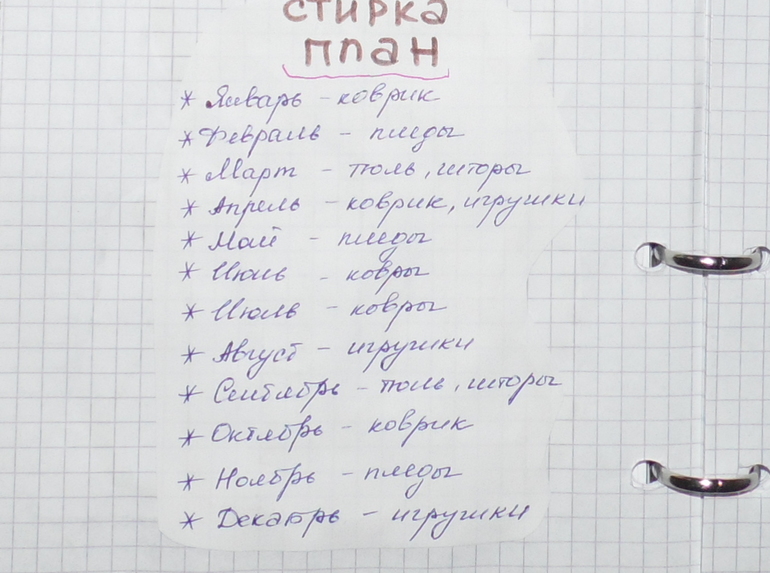 стирка
план
* Январь - коврик
* Февраль - пледы
* Март - тюль, шторы
* Апрель - коврик, игрушки
* Май - пледы
* Июнь - ковры
* Июль - ковры
* Август - игрушки
* Сентябрь - тюль, шторы
* Октябрь - коврик
* Ноябрь - пледы
* Декабрь - игрушки